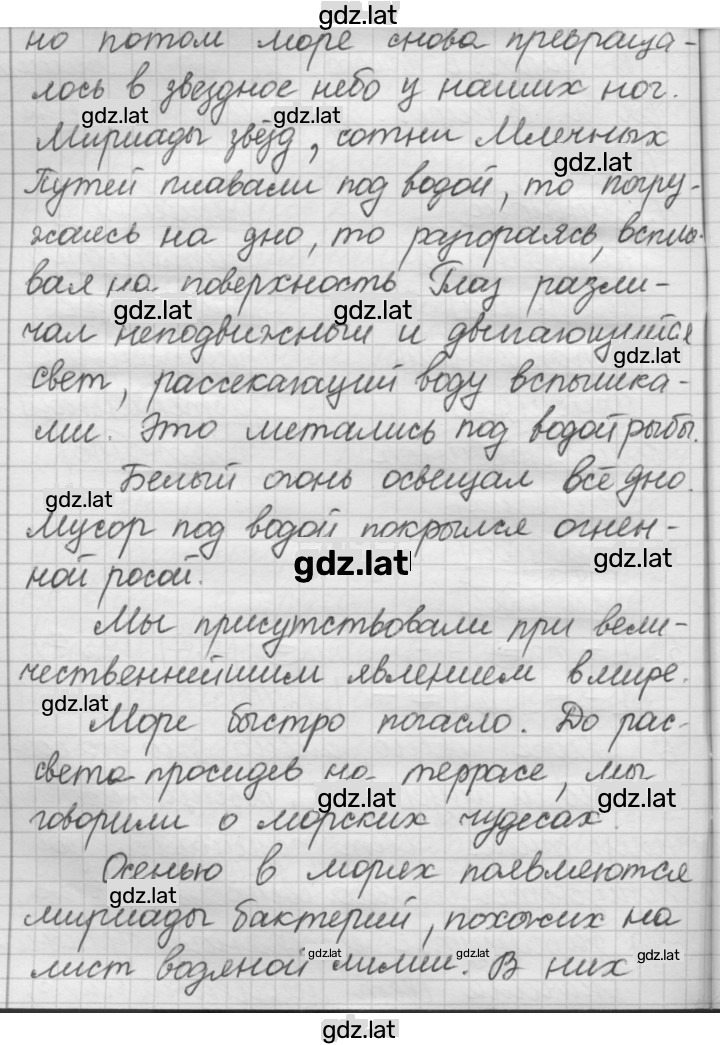 gdz.lat
но потом море снова превраща-
лось в звездное небо у наших ног.
gdz.lat gdz.lat
Мириады звёзд, сотни Млечных
gdz.lat
Путей плавали под водой, то погру-
жаясь на дно, то разгораясь, всплы-
вая на поверхность Глаз разли-
gdz.lat gdz.lat
чал неподвижный и двигающийся
gdz.lat
свет, рассекающий воду вспышка-
ми. Это метались под водой рыбы.
Белый огонь освещал всё дно.
gdz.lat
Мусор под водой покрылся огнен-
gdz.lat gdz.lat
ной росой.
Мы присутствовали при вели-
чественнейшим явлением в мире.
gdz.lat
Море быстро погасло. До рас-
света просидев на террасе, мы
gdz.lat gdz.lat
говорили о морских чудесах.
Осенью в морях появляются
gdz.lat
мириады бактерий, похожих на
лист водяной лилии. В них
gdz.lat gdz.lat gdz.lat
gdz.lat